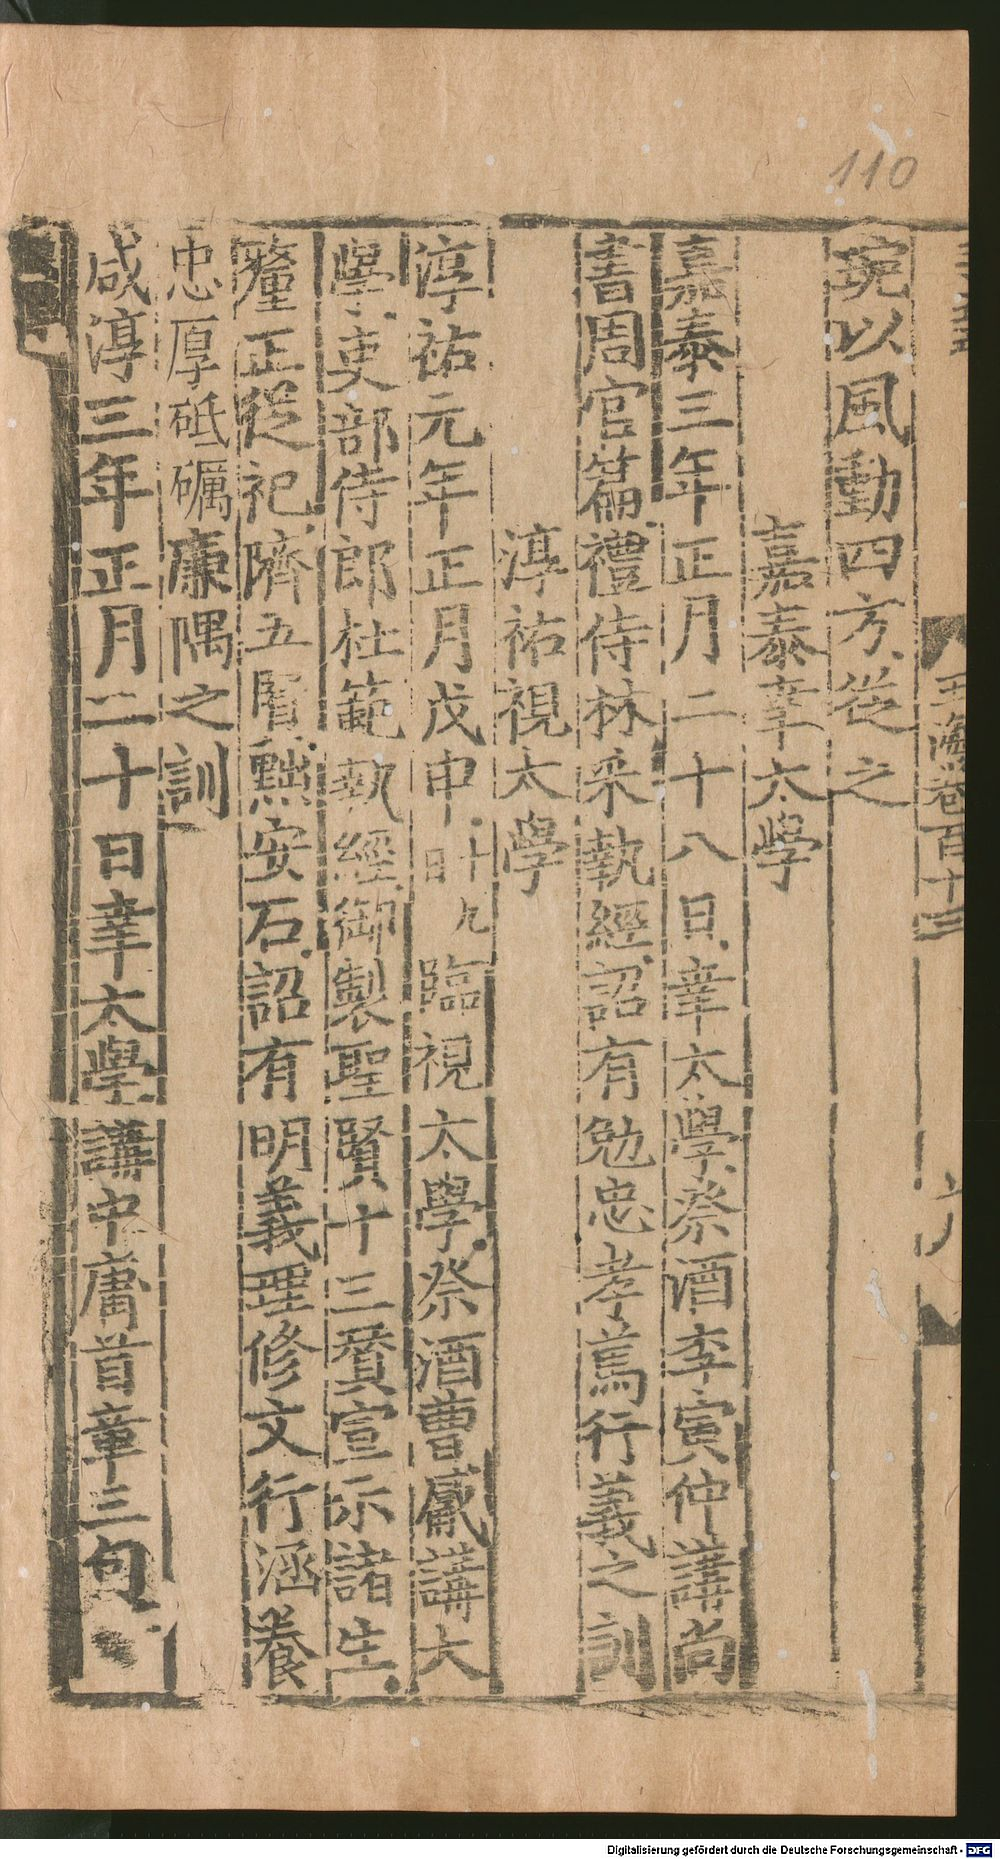 110
玉海卷百十三
琬以風動四方從之
嘉泰幸太學
嘉泰三年正月二十八日幸太學祭酒李寅仲講尚
書周官篇禮侍林采執經詔有勉忠孝篤行義之訓
淳祐視太學
淳祐元年正月戊申十九日臨視太學祭酒曹觱講大
學吏部侍郎杜範執經御製聖賢十三贊宣示諸生
釐正從祀隮五賢黜安石詔有明義理修文行涵養
忠厚砥礪廉隅之訓
咸淳三年正月二十日幸太學講中庸首章三句
Digitalisierung gefördert durch die Deutsche Forschungsgemeinschaft - DFG